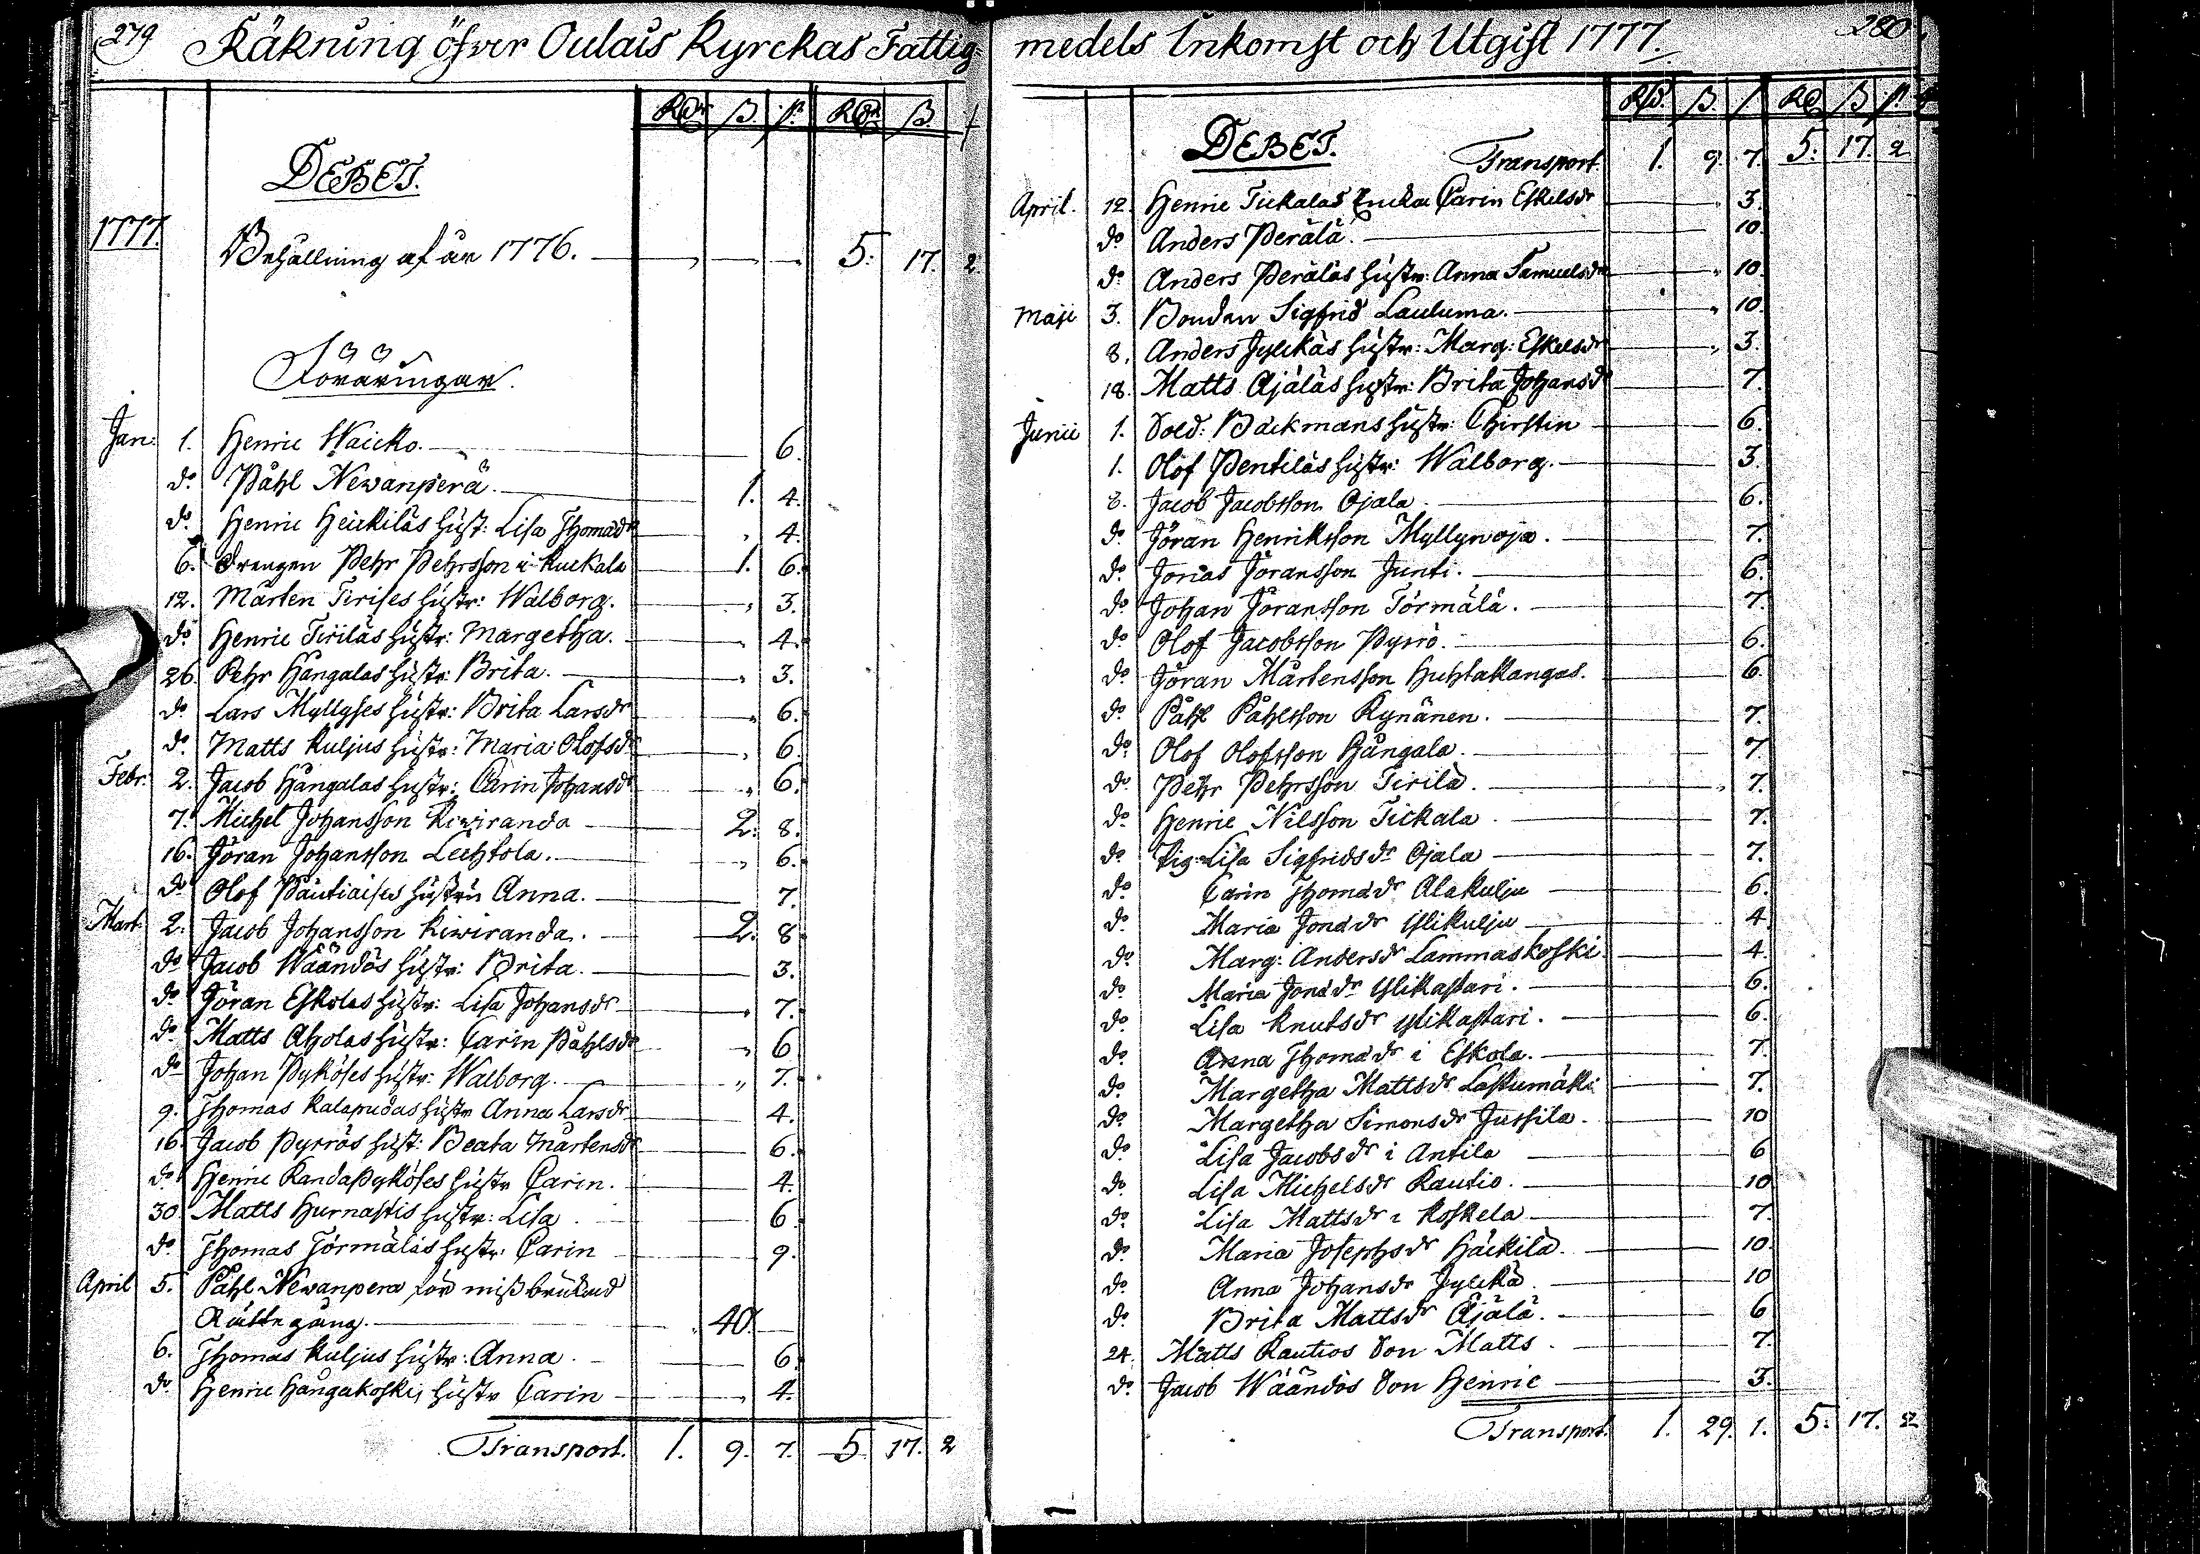 279 Räkning öfver Oulais Kyrckas Fattig
Rdr ß. p. Rdr ß.
DEBET.
1777.
Behållning af år 1776. 5. 17. 2
Föräringar.
Jan: 1. Henric Waicko. 6.
do Påhl Newanperä. 1. 4.
do Henric Heickiläs hust: Lisa Thomædr 4.
6. Drengen Pehr Pehrsson i Kuckala 1. 6.
12. Mårten Tirises hustr: Walborg. 3.
do Henric Tiriläs hustr: Margetha. 4.
26. Pehr Hångalas hustr: Brita. 3.
do Lars Myllyses hustr: Brita Larsdr 6.
do Matts Kuljus hustr: Maria Olofsdr 6.
Febr. 2. Jacob Hångalas hustr: Carin Johansdr 6.
7. Michel Johansson Kiwiranda 2. 8.
16. Jöran Johansson Lechtola. 6.
do Olof Pautiaises hustru Anna. 7.
Mart. 2. Jacob Johansson Kiwiranda. 2. 8.
do Jacob Wäändäs hustr: Brita. 3.
do Jöran Eskolas hustr: Lisa Johansdr 7.
do Matts Aholas hustr: Carin Påhlsdr 6
do Johan Pyköses hustr: Walborg. 7.
9. Thomas Kalapudas hustr Anna Larsdr 4.
16. Jacob Pyrrös hust: Beata Mårtensdr 6.
do Henric Randapyköses hustr Carin. 4.
30. Matts Hurnastis hustr: Lisa 6.
do Thomas Törmäläs hustr: Carin 9.
April 5. Påhl Newanpera för missbrukad
Rättegång. 40.
6. Thomas Kuljus hustr: Anna. 6.
do Henric Hångakoskis hustr Carin 4.
Transport. 1. 9. 7. 5. 17. 2
medels Inkomst och Utgift 1777. 280
Rd. ß. p. Rd. ß. p.
DEBET. Transport. 1. 9. 7. 5. 17. 2
April. 12. Henric Tickalas Encka Carin Eskelsdr 3.
do Anders Perälä. 10.
do Anders Peräläs hustr: Anna Samuelsdr 10.
Maji 3. Bonden Sigfrid Lauluma. 10.
8. Anders Jylckäs hustr: Marg: Eskelsdr 3.
18. Matts Äjäläs hustr: Brita Johansdr 7.
Junii 1. Sold: Backmans hustr: Chirstin 6.
1. Olof Pentiläs hustr: Walborg. 3.
8. Jacob Jacobsson Ojala 6.
do Jöran Henriksson Myllynoja. 7.
do Jonas Jöransson Junti. 6.
do Johan Jöransson Törmälä. 7.
do Olof Jacobsson Pyrrö. 6.
do Jöran Mårtensson Huhtakangas. 6.
do Påhl Påhlsson Kynänen. 7.
do Olof Olofsson Hångala. 7.
do Pehr Pehrsson Tirilä. 7.
do Henric Nilsson Tickala 7.
do Pig: Lisa Sigfridsdr Ojala 7.
do Carin Thomædr Alakulju 6.
do Maria Jonædr Ylikulju 4.
do Marg: Andersdr Lammaskoski. 4.
do Maria Jonædr Ylikastari. 6.
do Lisa Knutsdr Ylikastari. 6.
do Anna Thomædr i Eskola. 7.
do Margetha Mattsdr Laskumäki 7.
do Margetha Simonsdr Jussila. 10
do Lisa Jacobsdr i Antila 6
do Lisa Michelsdr Rautio. 10
do Lisa Mattsdr i Koskela 7.
do Maria Josephsdr Häckilä. 10.
do Anna Johansdr Jylckä. 10
do Brita Mattsdr Äjälä. 6
24. Matts Rautios Son Matts. 7.
do Jacob Wäändäs Son Henric 3.
Transport. 1. 29. 1. 5. 17. 2